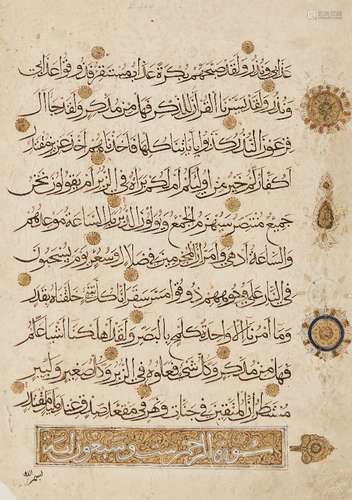 عذابي ونذر ولقد صبحهم بكرة عذاب مستقر فذوقوا عذابي
ونذر ولقد يسرنا القرآن للذكر فهل من مدكر ولقد جاء آل
فرعون النذر كذبوا بآياتنا كلها فأخذناهم أخذ عزيز مقتدر
أكفاركم خير من أولئكم أم لكم براءة في الزبر أم يقولون نحن
جميع منتصر سيهزم الجمع ويولون الدبر بل الساعة موعدهم
والساعة أدهى وأمر إن المجرمين في ضلال وسعر يوم يسحبون
في النار على وجوههم ذوقوا مس سقر إنا كل شيء خلقناه بقدر
وما أمرنا إلا واحدة كلمح بالبصر ولقد أهلكنا أشياعكم
فهل من مدكر وكل شيء فعلوه في الزبر وكل صغير وكبير
مستطر إن المتقين في جنات ونهر في مقعد صدق عند مليك مقتدر
سورة الرحمن ست وسبعون آية
بسم الله